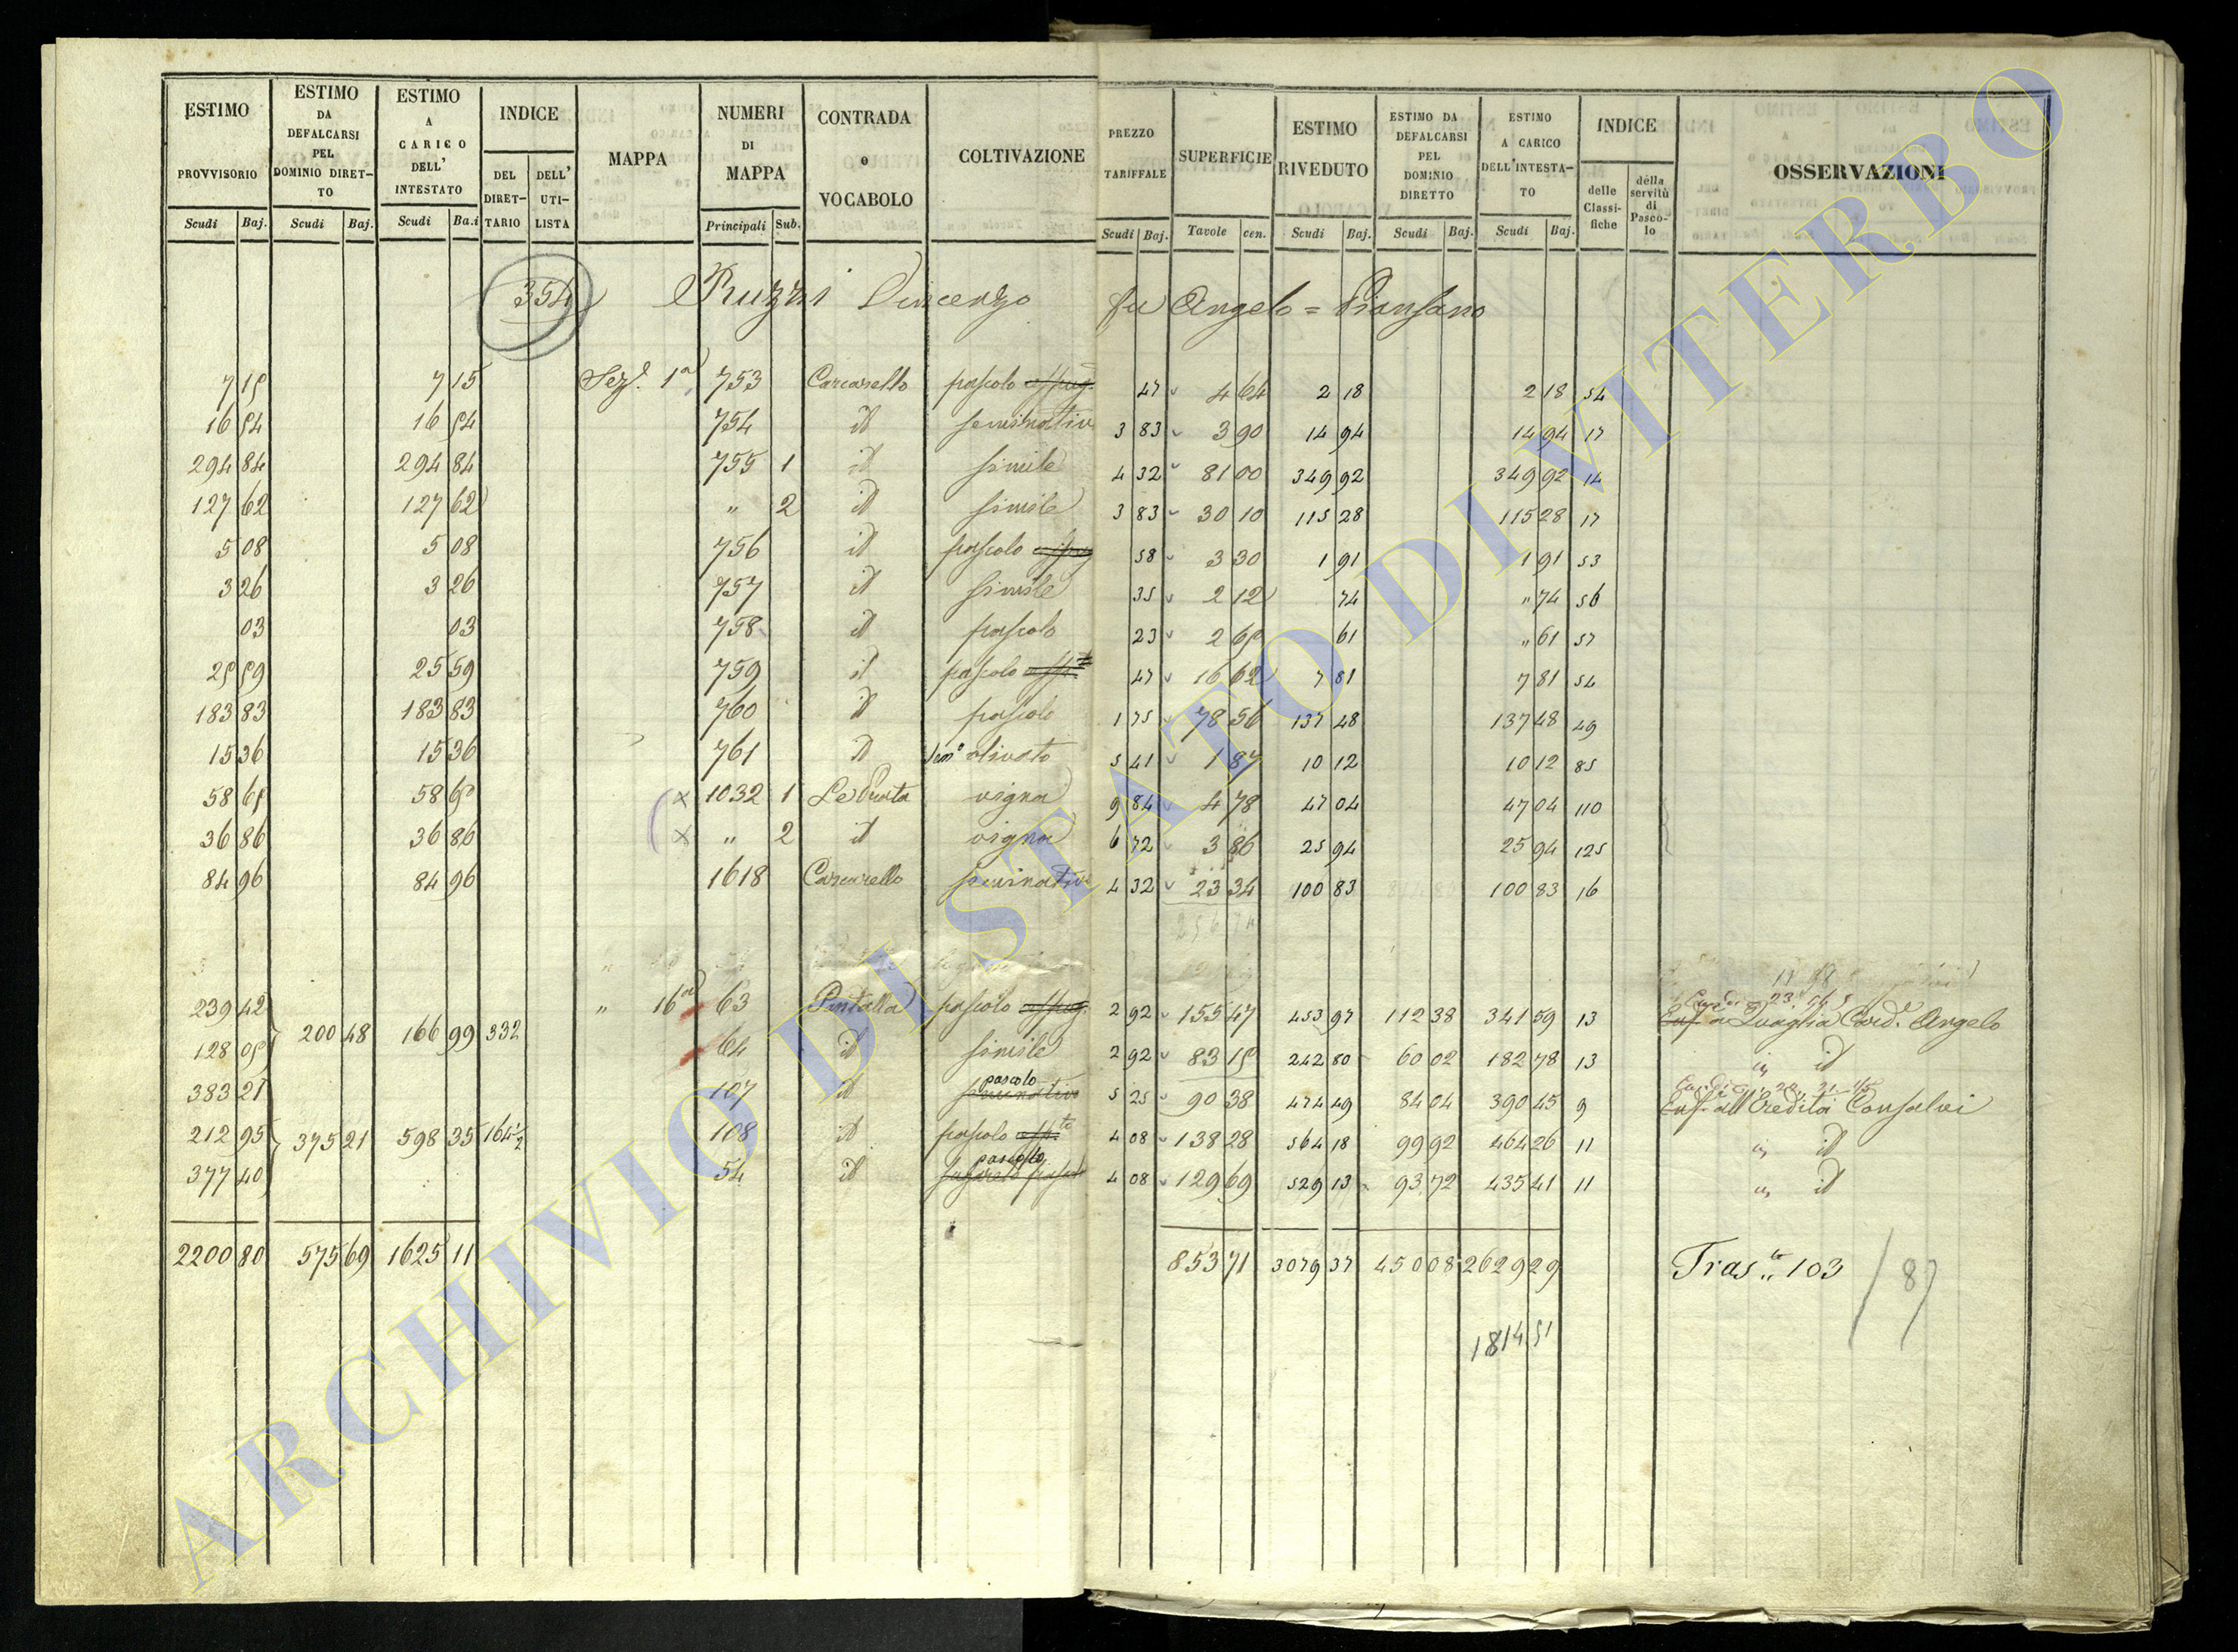 ESTIMO PROVVISORIO | ESTIMO DA DEFALCARSI PEL DOMINIO DIRETTO | ESTIMO A CARICO DELL' INTESTATO | INDICE | MAPPA | NUMERI DI MAPPA | CONTRADA o VOCABOLO | COLTIVAZIONE | PREZZO TARIFFALE | SUPERFICIE | ESTIMO RIVEDUTO | ESTIMO DA DEFALCARSI PEL DOMINIO DIRETTO | ESTIMO A CARICO DELL'INTESTATO | INDICE | OSSERVAZIONI
Scudi | Baj. | Scudi | Baj. | Scudi | Ba.i | DEL DIRETTARIO | DELL' UTILISTA | Principali | Sub. | Scudi | Baj. | Tavole | cen. | Scudi | Baj. | Scudi | Baj. | Scudi | Baj. | delle Classifiche | della servitù di Pascolo
354 Ruzzi Vincenzo fu Angelo = Piansano
7 15 | 7 15 | Sez.e 1a | 753 | Carcarello | pascolo | 47 | 4 64 | 2 18 | 2 18 | 54
16 54 | 16 54 | 754 | id | seminativo | 3 83 | 3 90 | 14 94 | 14 94 | 17
294 84 | 294 84 | 755 | 1 | id | simile | 4 32 | 81 00 | 349 92 | 349 92 | 14
127 62 | 127 62 | " | 2 | id | simile | 3 83 | 30 10 | 115 28 | 115 28 | 17
5 08 | 5 08 | 756 | id | pascolo | 58 | 3 30 | 1 91 | 1 91 | 53
3 26 | 3 26 | 757 | id | simile | 35 | 2 12 | 74 | " 74 | 56
03 | 03 | 758 | id | pascolo | 23 | 2 65 | 61 | " 61 | 57
25 59 | 25 59 | 759 | id | pascolo | 47 | 16 62 | 7 81 | 7 81 | 54
183 83 | 183 83 | 760 | id | pascolo | 1 75 | 78 56 | 137 48 | 137 48 | 49
15 36 | 15 36 | 761 | id | sem.o olivato | 5 41 | 1 87 | 10 12 | 10 12 | 85
58 65 | 58 65 | x | 1032 | 1 | vigna | 9 84 | 4 78 | 47 04 | 47 04 | 110
36 86 | 36 86 | x | " | 2 | id | vigna | 6 72 | 3 86 | 25 94 | 25 94 | 125
84 96 | 84 96 | 1618 | Carcarello | seminativo | 4 32 | 23 34 | 100 83 | 100 83 | 16
239 42 | " 16a | 63 | pascolo | 2 92 | 155 47 | 453 97 | 112 38 | 341 59 | 13 | a Quaglia Card.e Angelo
200 48 | 166 99 | 332
128 05 | 64 | id | simile | 2 92 | 83 15 | 242 80 | 60 02 | 182 78 | 13 | id
383 21 | 107 | id | pascolo | 5 25 | 90 38 | 474 49 | 84 04 | 390 45 | 9 | all'Eredità Consalvi
212 95 | 375 21 | 598 35 | 164 1/2 | 108 | id | pascolo | 4 08 | 138 28 | 564 18 | 99 92 | 464 26 | 11 | id
377 40 | 54 | id | pascolo | 4 08 | 129 69 | 529 13 | 93 72 | 435 41 | 11 | id
2200 80 | 575 69 | 1625 11 | 853 71 | 3079 37 | 450 08 | 2629 29 | Tras.to 103 | 87
1814 51
ARCHIVIO DI STATO DI VITERBO